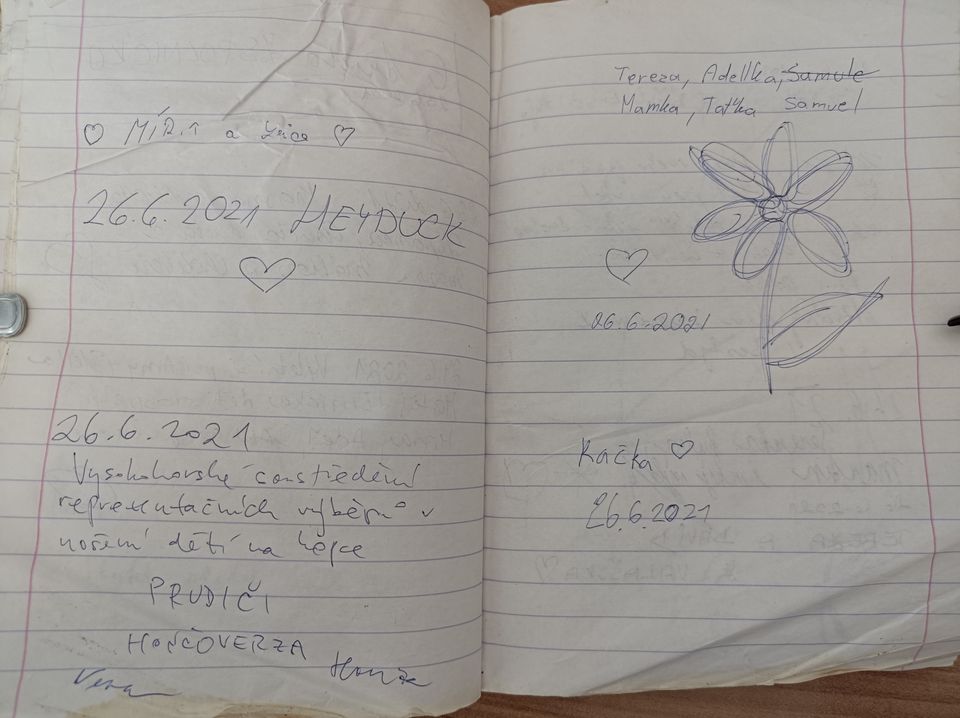 ♡ MÍR. a ♡
26.6.2021 HEYDUCK
26.6.2021
Vysokohorské soustředění
reprezentačních výběrů v
nošení dětí na
PRUDIČI
Věra
Tereza, Adélka, Samule
Mamka, Taťka Samuel
26.6.2021
Kačka ♡
26.6.2021